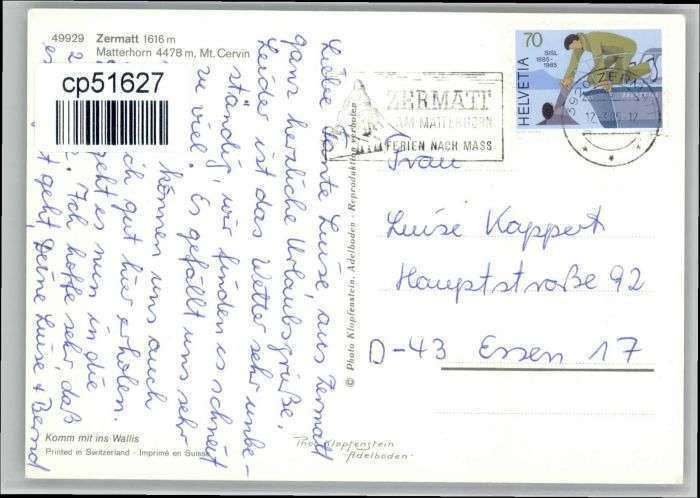 49929 Zermatt 1616 m
Matterhorn 4478 m, Mt. Cervin
cp51627
Liebe Tante Luise, aus Zermatt
ganz herzliche Urlaubsgrüße.
Leider ist das Wetter sehr unbe-
ständig, wir finden es schneit
zu viel. Es gefällt uns sehr
können uns auch
ich gut hier erholen.
geht es nun in die
2. Ich hoffe sehr, daß
es geht, Deine Luise + Bernd
Komm mit ins Wallis
Printed in Switzerland - Imprimé en Suisse
© Photo Klopfenstein, Adelboden - Reproduktion verboten
Photo Klopfenstein
"Adelboden"
ZERMATT
AM MATTERHORN
FERIEN NACH MASS
70
SISL
1885-
1985
HELVETIA
3920 ZERMATT
Frau
Luise Kappert
Hauptstraße 92
D-43 Essen 17